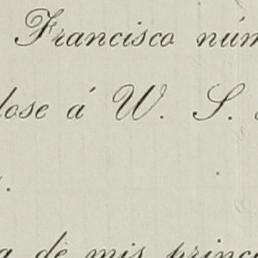 Francisco núm
lose á W. S.
a de mis princ